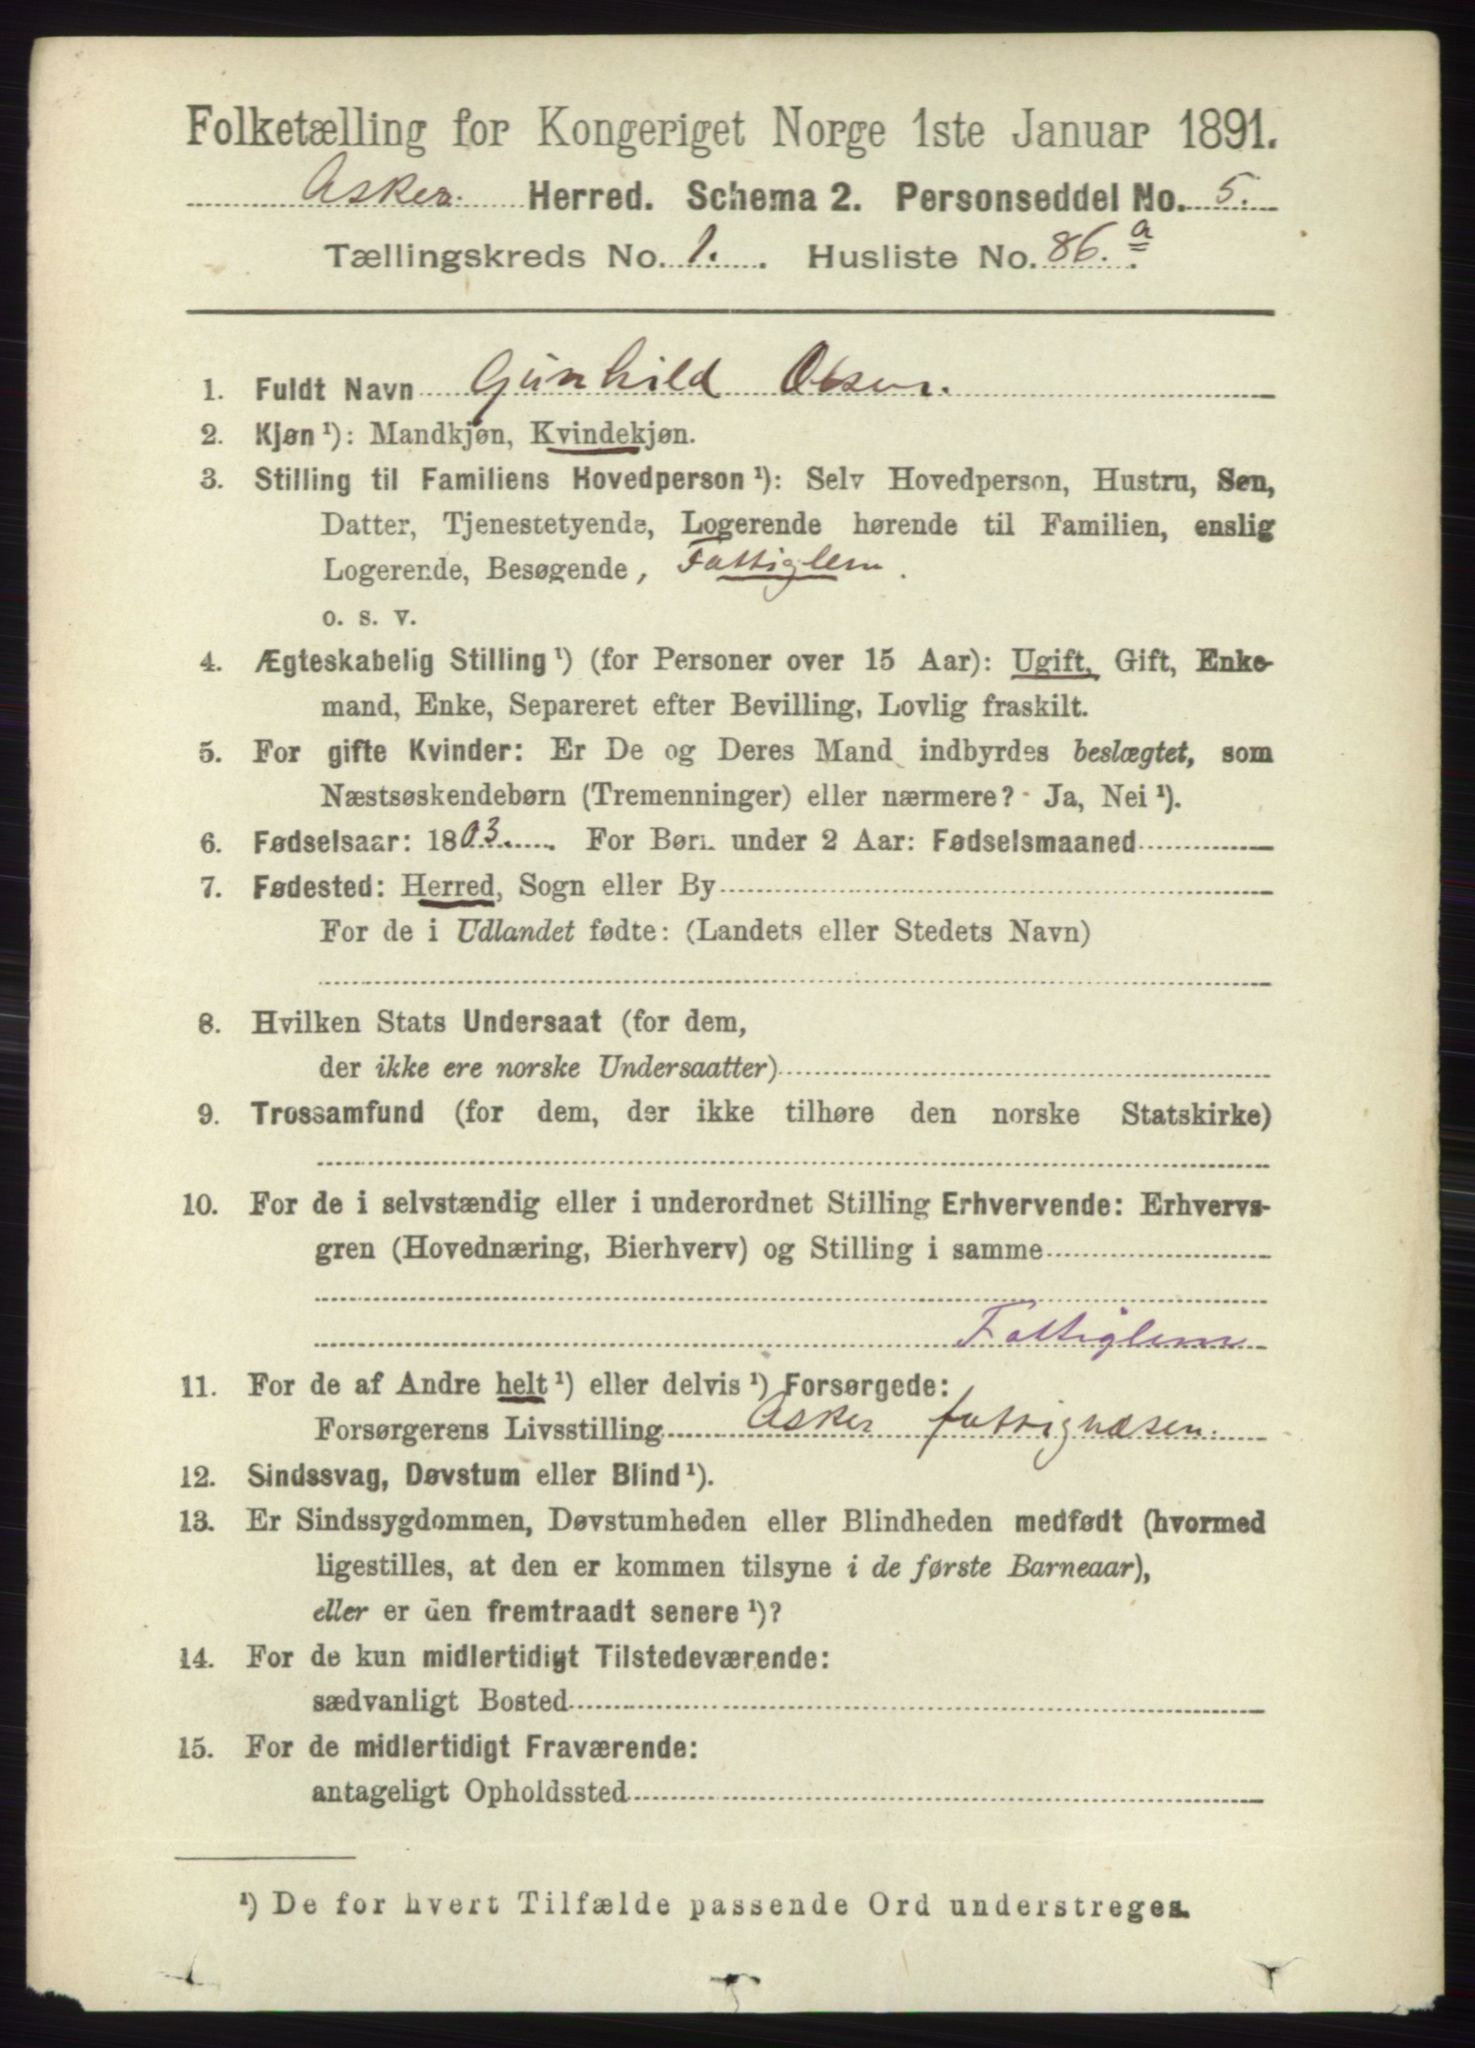 Folketælling for Kongeriget Norge 1ste Januar 1891.
Asker. Herred. Schema 2. Personseddel No. 5.
Tællingskreds No. 1. Husliste No. 86. a
1. Fuldt Navn Gunhild Olsen.
2. Kjøn ¹): Mandkjøn, Kvindekjøn.
3. Stilling til Familiens Hovedperson ¹): Selv Hovedperson, Hustru, Søn,
Datter, Tjenestetyende, Logerende hørende til Familien, enslig
Logerende, Besøgende, Fattiglem.
o. s. v.
4. Ægteskabelig Stilling ¹) (for Personer over 15 Aar): Ugift, Gift, Enke-
mand, Enke, Separeret efter Bevilling, Lovlig fraskilt.
5. For gifte Kvinder: Er De og Deres Mand indbyrdes beslægtet, som
Næstsøskendebørn (Tremenninger) eller nærmere? Ja, Nei ¹).
6. Fødselsaar: 1803. For Børn under 2 Aar: Fødselsmaaned
7. Fødested: Herred, Sogn eller By
For de i Udlandet fødte: (Landets eller Stedets Navn)
8. Hvilken Stats Undersaat (for dem,
der ikke ere norske Undersaatter)
9. Trossamfund (for dem, der ikke tilhøre den norske Statskirke)
10. For de i selvstændig eller i underordnet Stilling Erhvervende: Erhvervs-
gren (Hovednæring, Bierhverv) og Stilling i samme
Fattiglem
11. For de af Andre helt ¹) eller delvis ¹) Forsørgede:
Forsørgerens Livsstilling Asker fattigvæsen.
12. Sindssvag, Døvstum eller Blind ¹).
13. Er Sindssygdommen, Døvstumheden eller Blindheden medfødt (hvormed
ligestilles, at den er kommen tilsyne i de første Barneaar),
eller er den fremtraadt senere ¹)?
14. For de kun midlertidigt Tilstedeværende:
sædvanligt Bosted
15. For de midlertidigt Fraværende:
antageligt Opholdssted
¹) De for hvert Tilfælde passende Ord understreges.